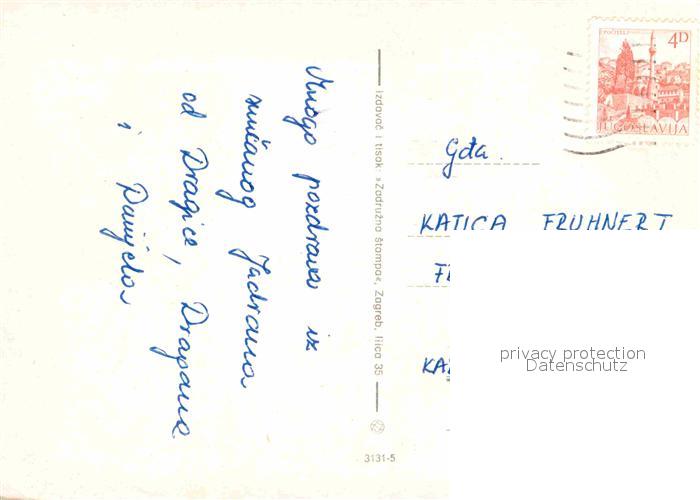 Mnogo pozdrava iz
sunčanog Jadrana
od Dragice, Dragana
i Danijela
Izdavač i tisak: »Zadružna štampa«, Zagreb, Ilica 35
3131-5
POČITELJ
4D
JUGOSLAVIJA
Gđa.
KATICA FRUHNERT
privacy protection
Datenschutz